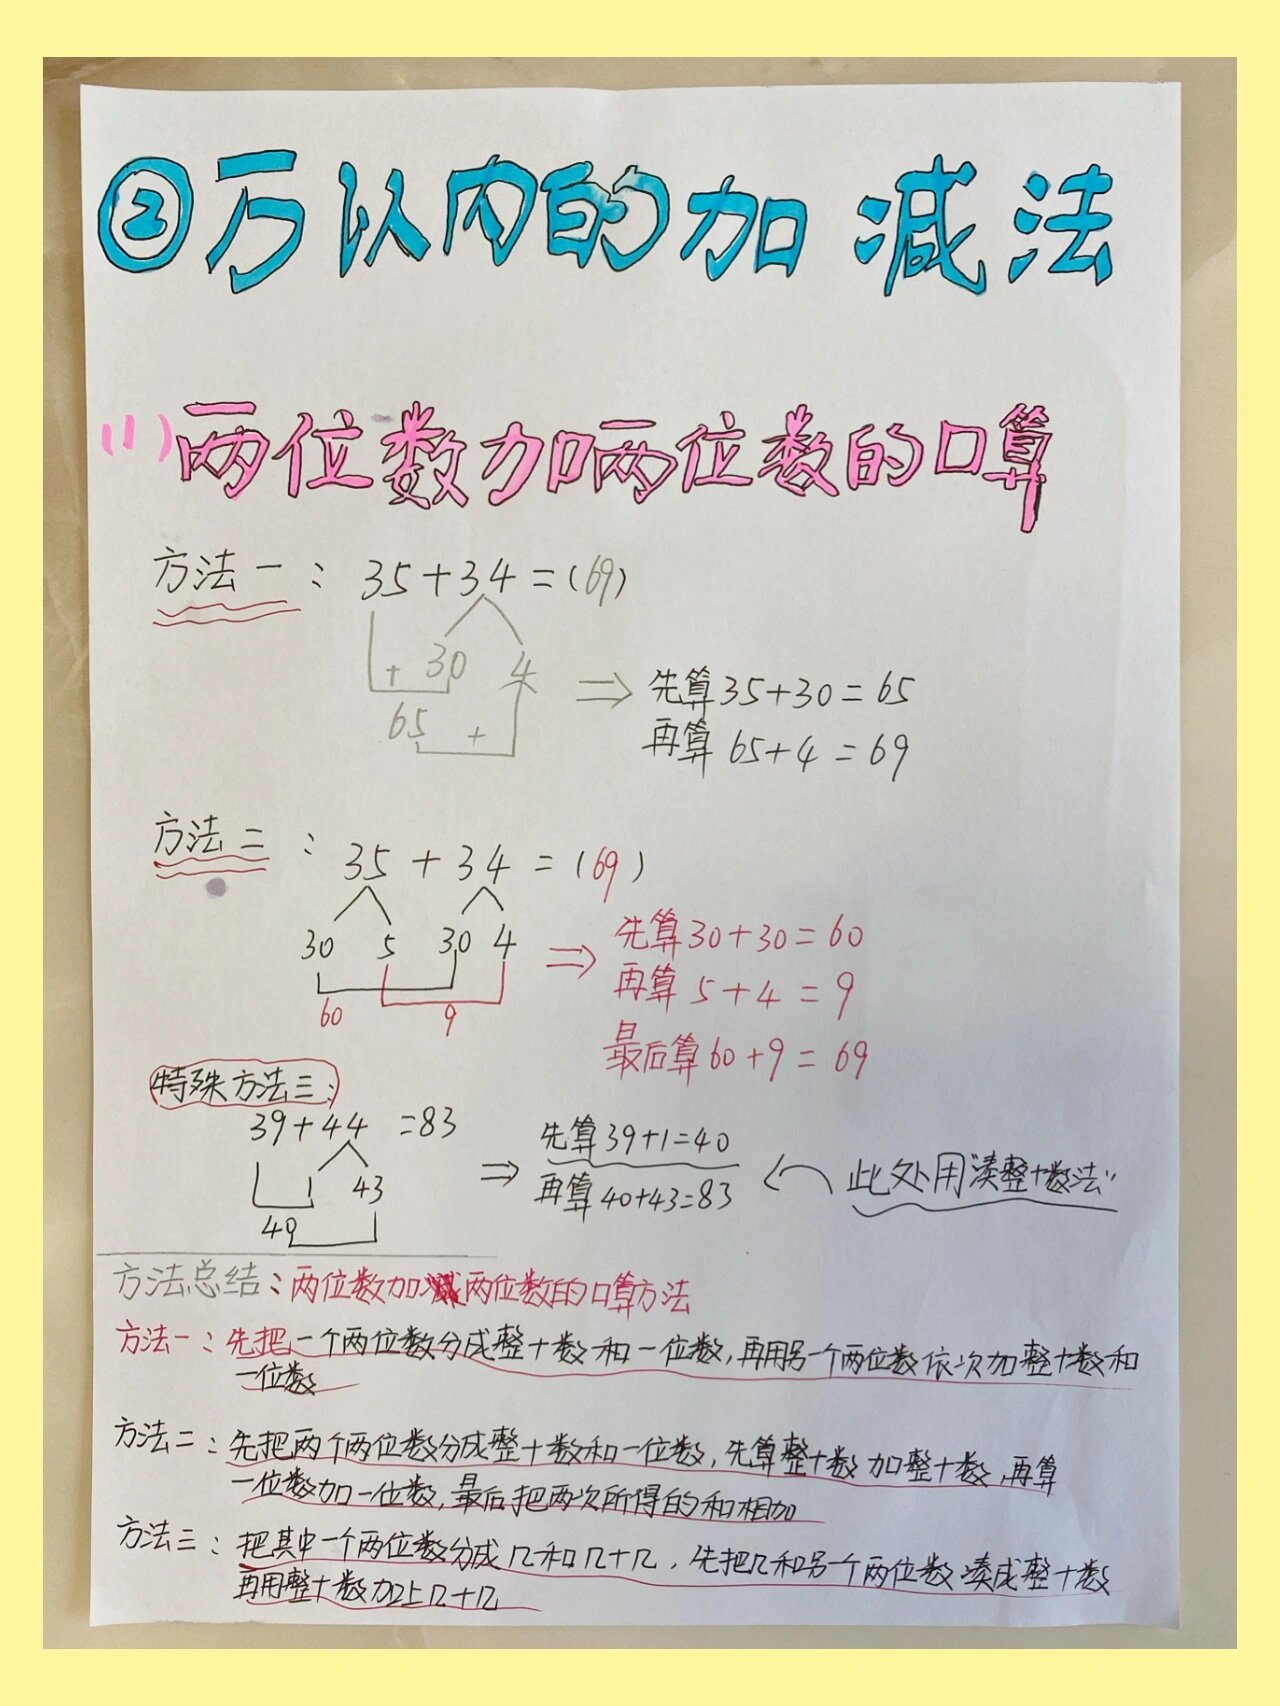 ②万以内的加减法
(1)两位数加两位数的口算
方法一: 35+34=(69)
+ 30 4
65 +
⇒ 先算35+30=65
再算 65+4=69
方法二: 35+34=(69)
30 5 30 4
60 9
⇒ 先算30+30=60
再算 5+4=9
最后算60+9=69
特殊方法三:
39+44=83
1 43
40
⇒ 先算39+1=40
再算40+43=83
此处用凑整十数法
方法总结:两位数加两位数的口算方法
方法一:先把一个两位数分成整十数和一位数,再用另一个两位数依次加整十数和
一位数
方法二:先把两个两位数分成整十数和一位数,先算整十数加整十数,再算
一位数加一位数,最后把两次所得的和相加
方法三:把其中一个两位数分成几和几十几,先把几和另一个两位数凑成整十数
再用整十数加上几十几